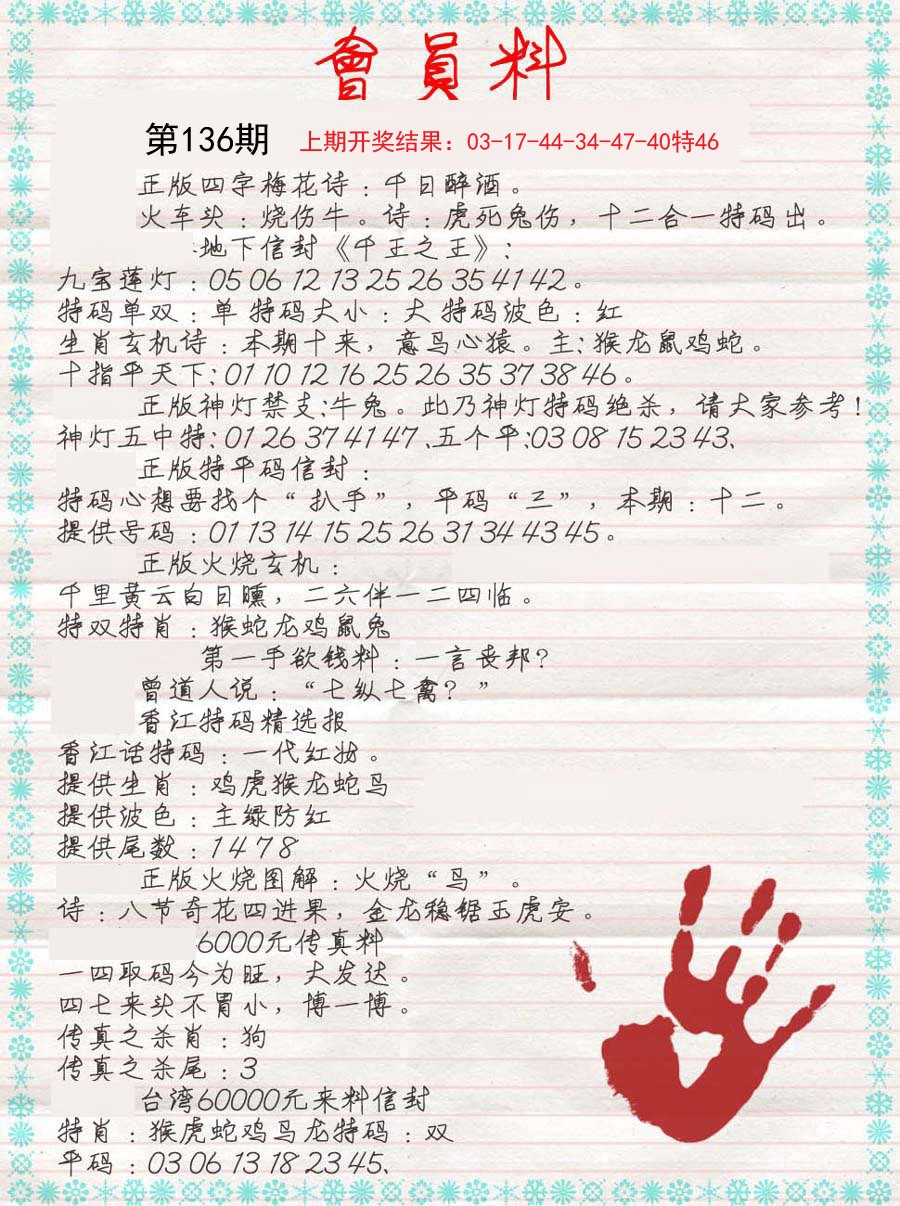 會員料
第136期 上期开奖结果：03-17-44-34-47-40特46
正版四字梅花诗：千日醉酒。
火车头：烧伤牛。诗：虎死兔伤，十二合一特码出。
地下信封《千王之王》：
九宝莲灯：05 06 12 13 25 26 35 41 42。
特码单双：单 特码大小：大 特码波色：红
生肖玄机诗：本期十来，意鸟心猿。主：猴龙鼠鸡蛇。
十指平天下：01 10 12 16 25 26 35 37 38 46。
正版神灯禁支：牛兔。此乃神灯特码绝杀，请大家参考！
神灯五中特：01 26 37 41 47、五个平：03 08 15 23 43、
正版特平码信封：
特码心想要找个“扒手”，平码“三”，本期：十二。
提供号码：01 13 14 15 25 26 31 34 43 45。
正版火烧玄机：
千里黄云白日曛，二六伴一二四临。
特双特肖：猴蛇龙鸡鼠兔
第一手欲钱料：一言丧邦？
曾道人说：“七纵七禽？”
香江特码精选报
香江话特码：一代红妆。
提供生肖：鸡虎猴龙蛇鸟
提供波色：主绿防红
提供尾数：1 4 7 8
正版火烧图解：火烧“鸟”。
诗：八节奇花四进果，金龙稳锯玉虎安。
6000元传真料
一四取码今为旺，大发达。
四七来头不胃小，博一博。
传真之杀肖：狗
传真之杀尾：3
台湾60000元来料信封
特肖：猴虎蛇鸡鸟龙特码：双
平码：03 06 13 18 23 45、